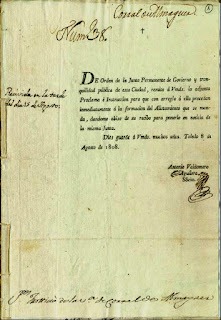 Corral de Almaguer
1
Num.º 38.
Recivida en la tarde
del dia
DE Orden de la Junta Permanente de Govierno y tran-
quilidad pública de esta Ciudad, remito á Vmds. la adjunta
Proclama é Instruccion para que con arreglo á ella procedan
inmediatamente á la formacion del Alistamiento que se man-
da, dandome abiso de su recibo para ponerlo en noticia de
la misma Junta.
Dios guarde á Vmds. muchos años. Toledo 8 de
Agosto de 1808.
Antonio Valdomero
de Aguilera
Srio.
Sres. Justicia de la v.ª de Corral de Almaguer